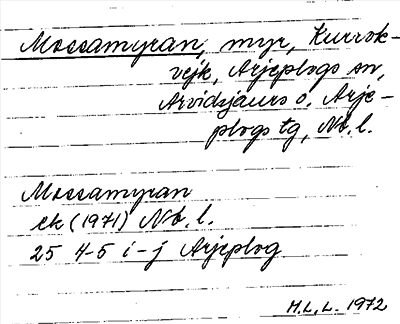 Mossamyran, myr, Kurrok-
vejk, Arjeplogs sn,
Arvidsjaurs o, Arje-
plogs tg, Nb. l.
Mossamyran
ek (1971) Nb. l.
25 4-5 i-j Arjeplog
M.L.L. 1972